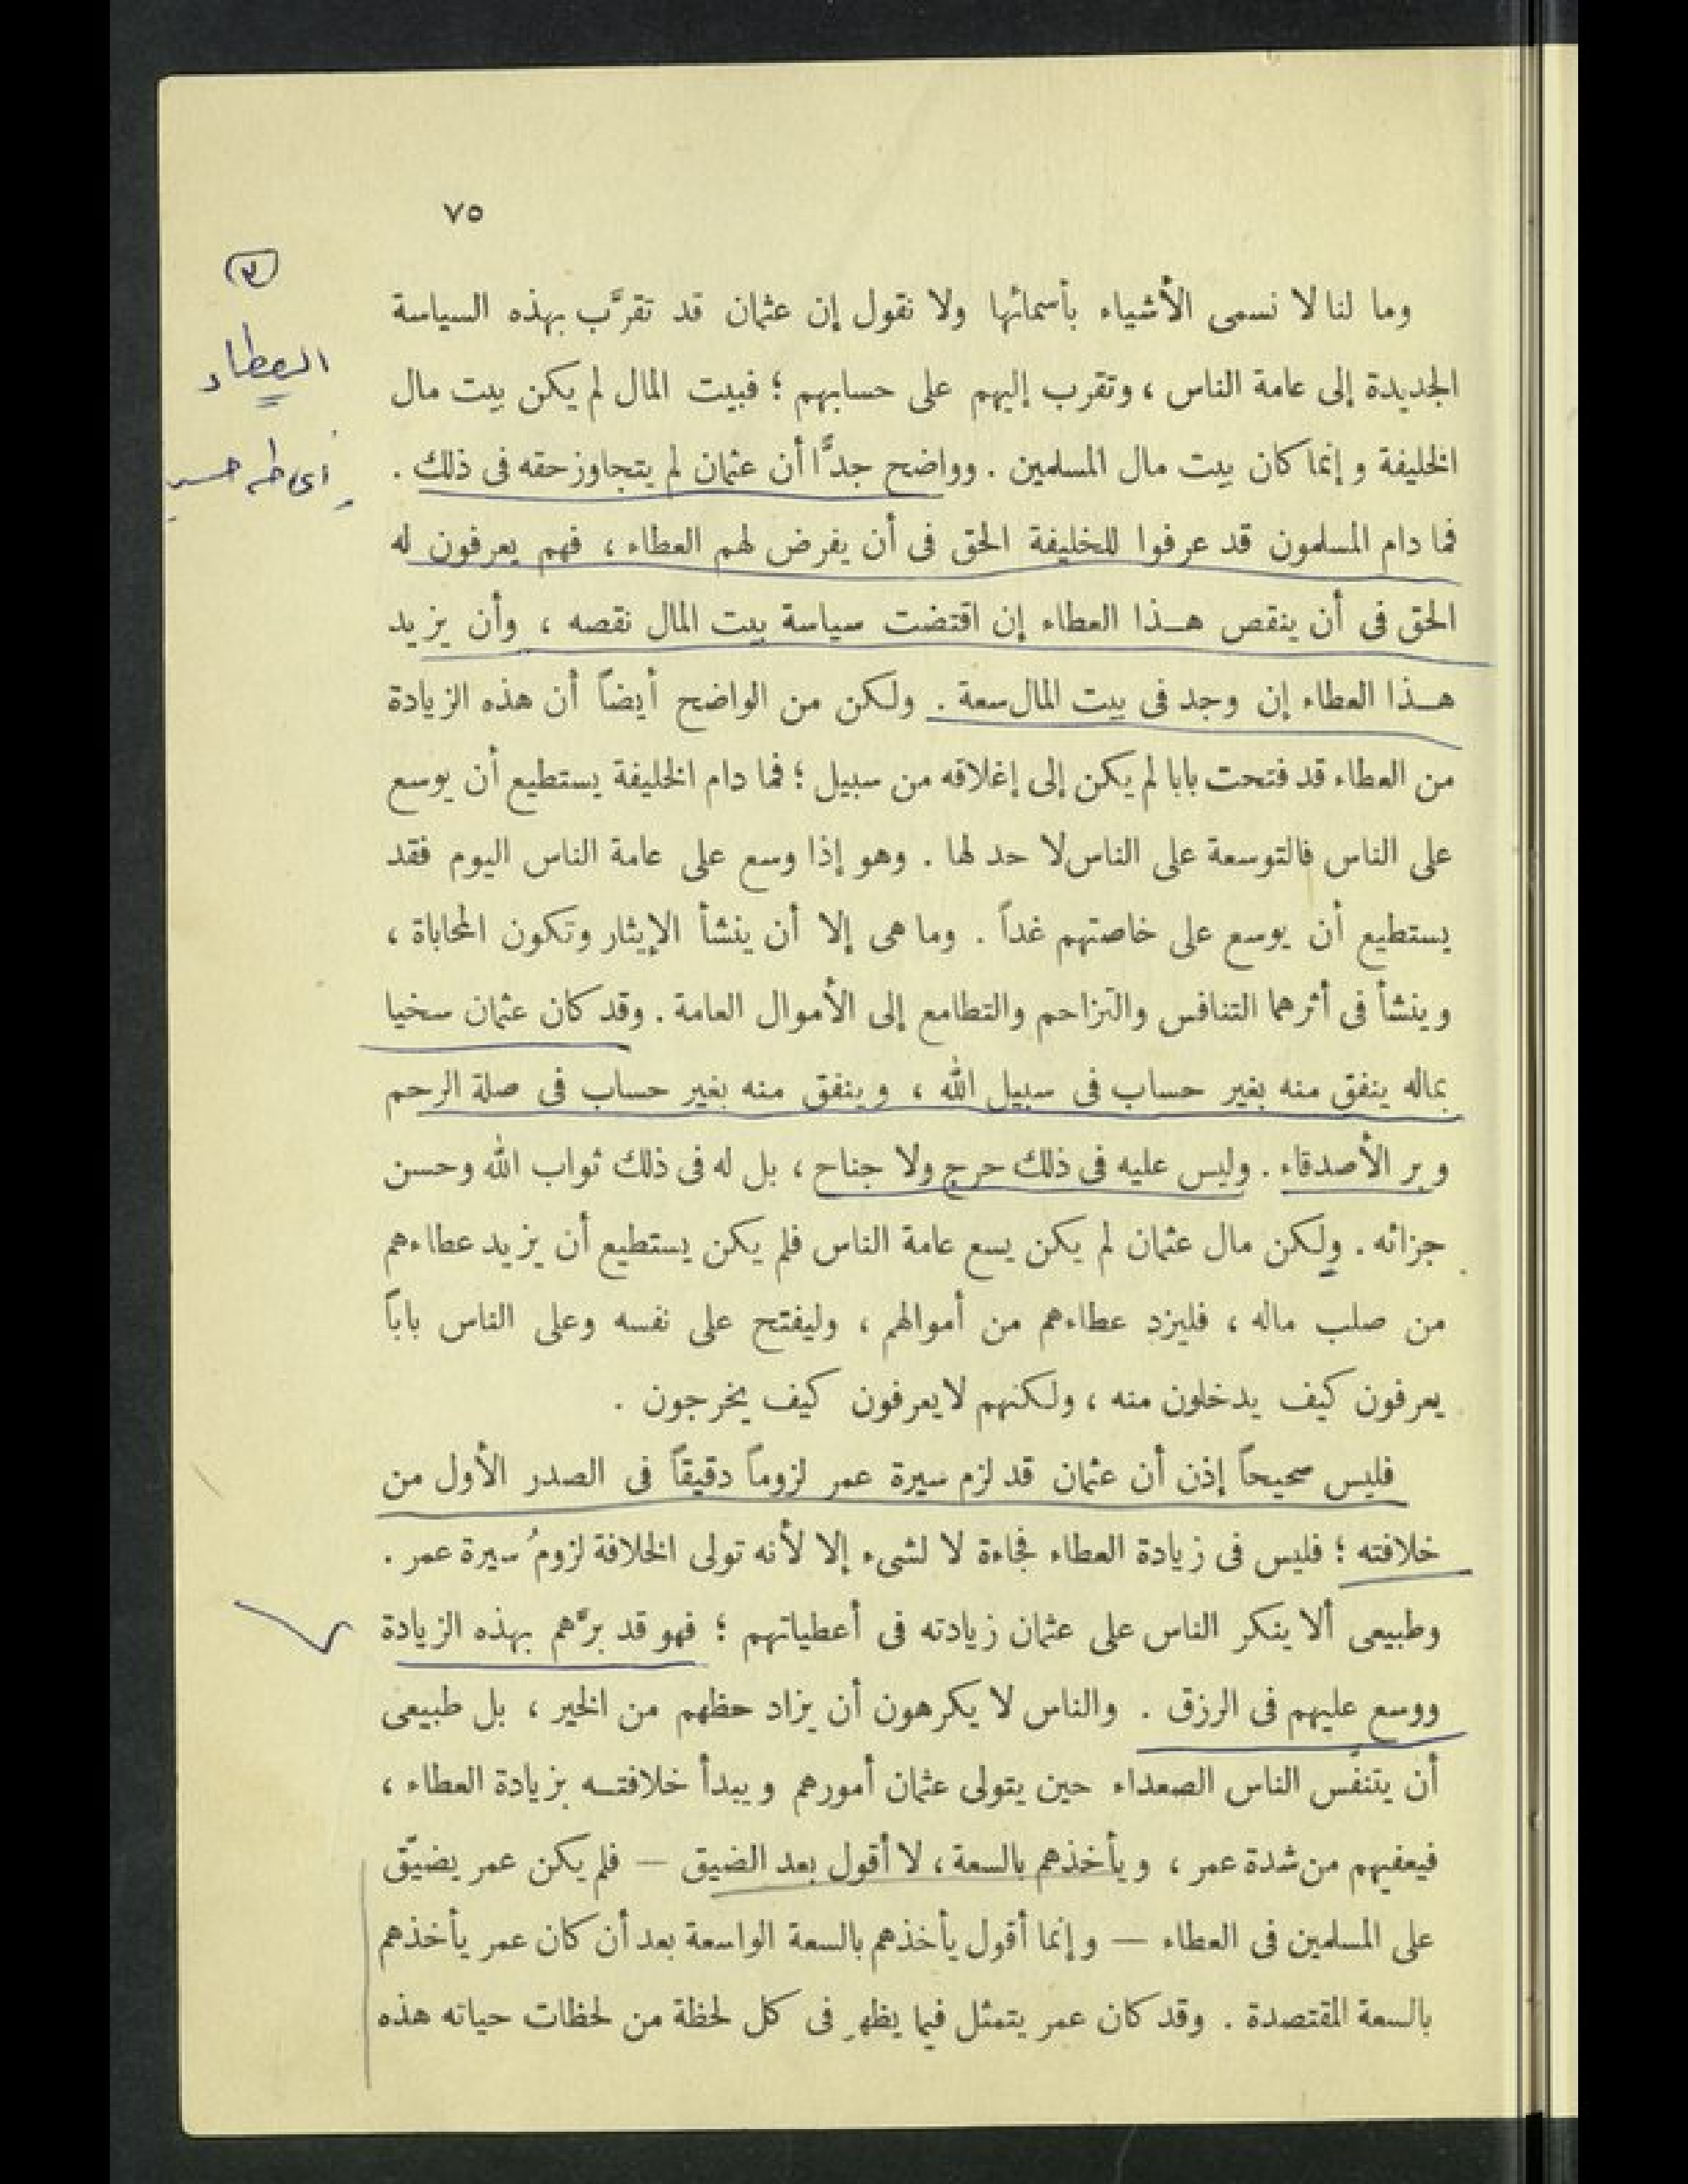 ٧٥
٣
العطاء
رأى طه حسين
وما لنا لا نسمى الأشياء بأسمائها ولا نقول إن عثمان قد تقرَّب بهذه السياسة
الجديدة إلى عامة الناس ، وتقرب إليهم على حسابهم ؛ فبيت المال لم يكن بيت مال
الخليفة وإنما كان بيت مال المسلمين . وواضح جدًّا أن عثمان لم يتجاوز حقه فى ذلك .
فما دام المسلمون قد عرفوا للخليفة الحق فى أن يفرض لهم العطاء ، فهم يعرفون له
الحق فى أن ينقص هـذا العطاء إن اقتضت سياسة بيت المال نقصه ، وأن يزيد
هـذا العطاء إن وجد فى بيت المال سعة . ولكن من الواضح أيضاً أن هذه الزيادة
من العطاء قد فتحت بابا لم يكن إلى إغلاقه من سبيل ؛ فما دام الخليفة يستطيع أن يوسع
على الناس فالتوسعة على الناس لا حد لها . وهو إذا وسع على عامة الناس اليوم فقد
يستطيع أن يوسع على خاصتهم غداً . وما هى إلا أن ينشأ الإيثار وتكون المحاباة ،
وينشأ فى أثرهما التنافس والتزاحم والتطامع إلى الأموال العامة . وقد كان عثمان سخيا
بماله ينفق منه بغير حساب فى سبيل الله ، وينفق منه بغير حساب فى صلة الرحم
وبر الأصدقاء . وليس عليه فى ذلك حرج ولا جناح ، بل له فى ذلك ثواب الله وحسن
جزائه . ولكن مال عثمان لم يكن يسع عامة الناس فلم يكن يستطيع أن يزيد عطاءهم
من صلب ماله ، فليزد عطاءهم من أموالهم ، وليفتح على نفسه وعلى الناس باباً
يعرفون كيف يدخلون منه ، ولكنهم لا يعرفون كيف يخرجون .
فليس صحيحاً إذن أن عثمان قد لزم سيرة عمر لزوماً دقيقاً فى الصدر الأول من
خلافته ؛ فليس فى زيادة العطاء فجاءة لا لشىء إلا لأنه تولى الخلافة لزومُ سيرة عمر .
وطبيعى ألا ينكر الناس على عثمان زيادته فى أعطياتهم ؛ فهو قد برَّهم بهذه الزيادة
ووسع عليهم فى الرزق . والناس لا يكرهون أن يزاد حظهم من الخير ، بل طبيعى
أن يتنفَّس الناس الصعداء حين يتولى عثمان أمورهم ويبدأ خلافتـه بزيادة العطاء ،
فيعفيهم من شدة عمر ، ويأخذهم بالسعة ، لا أقول بعد الضيق — فلم يكن عمر يضيّق
على المسلمين فى العطاء — وإنما أقول يأخذهم بالسعة الواسعة بعد أن كان عمر يأخذهم
بالسعة المقتصدة . وقد كان عمر يتمثل فيما يظهر فى كل لحظة من لحظات حياته هذه